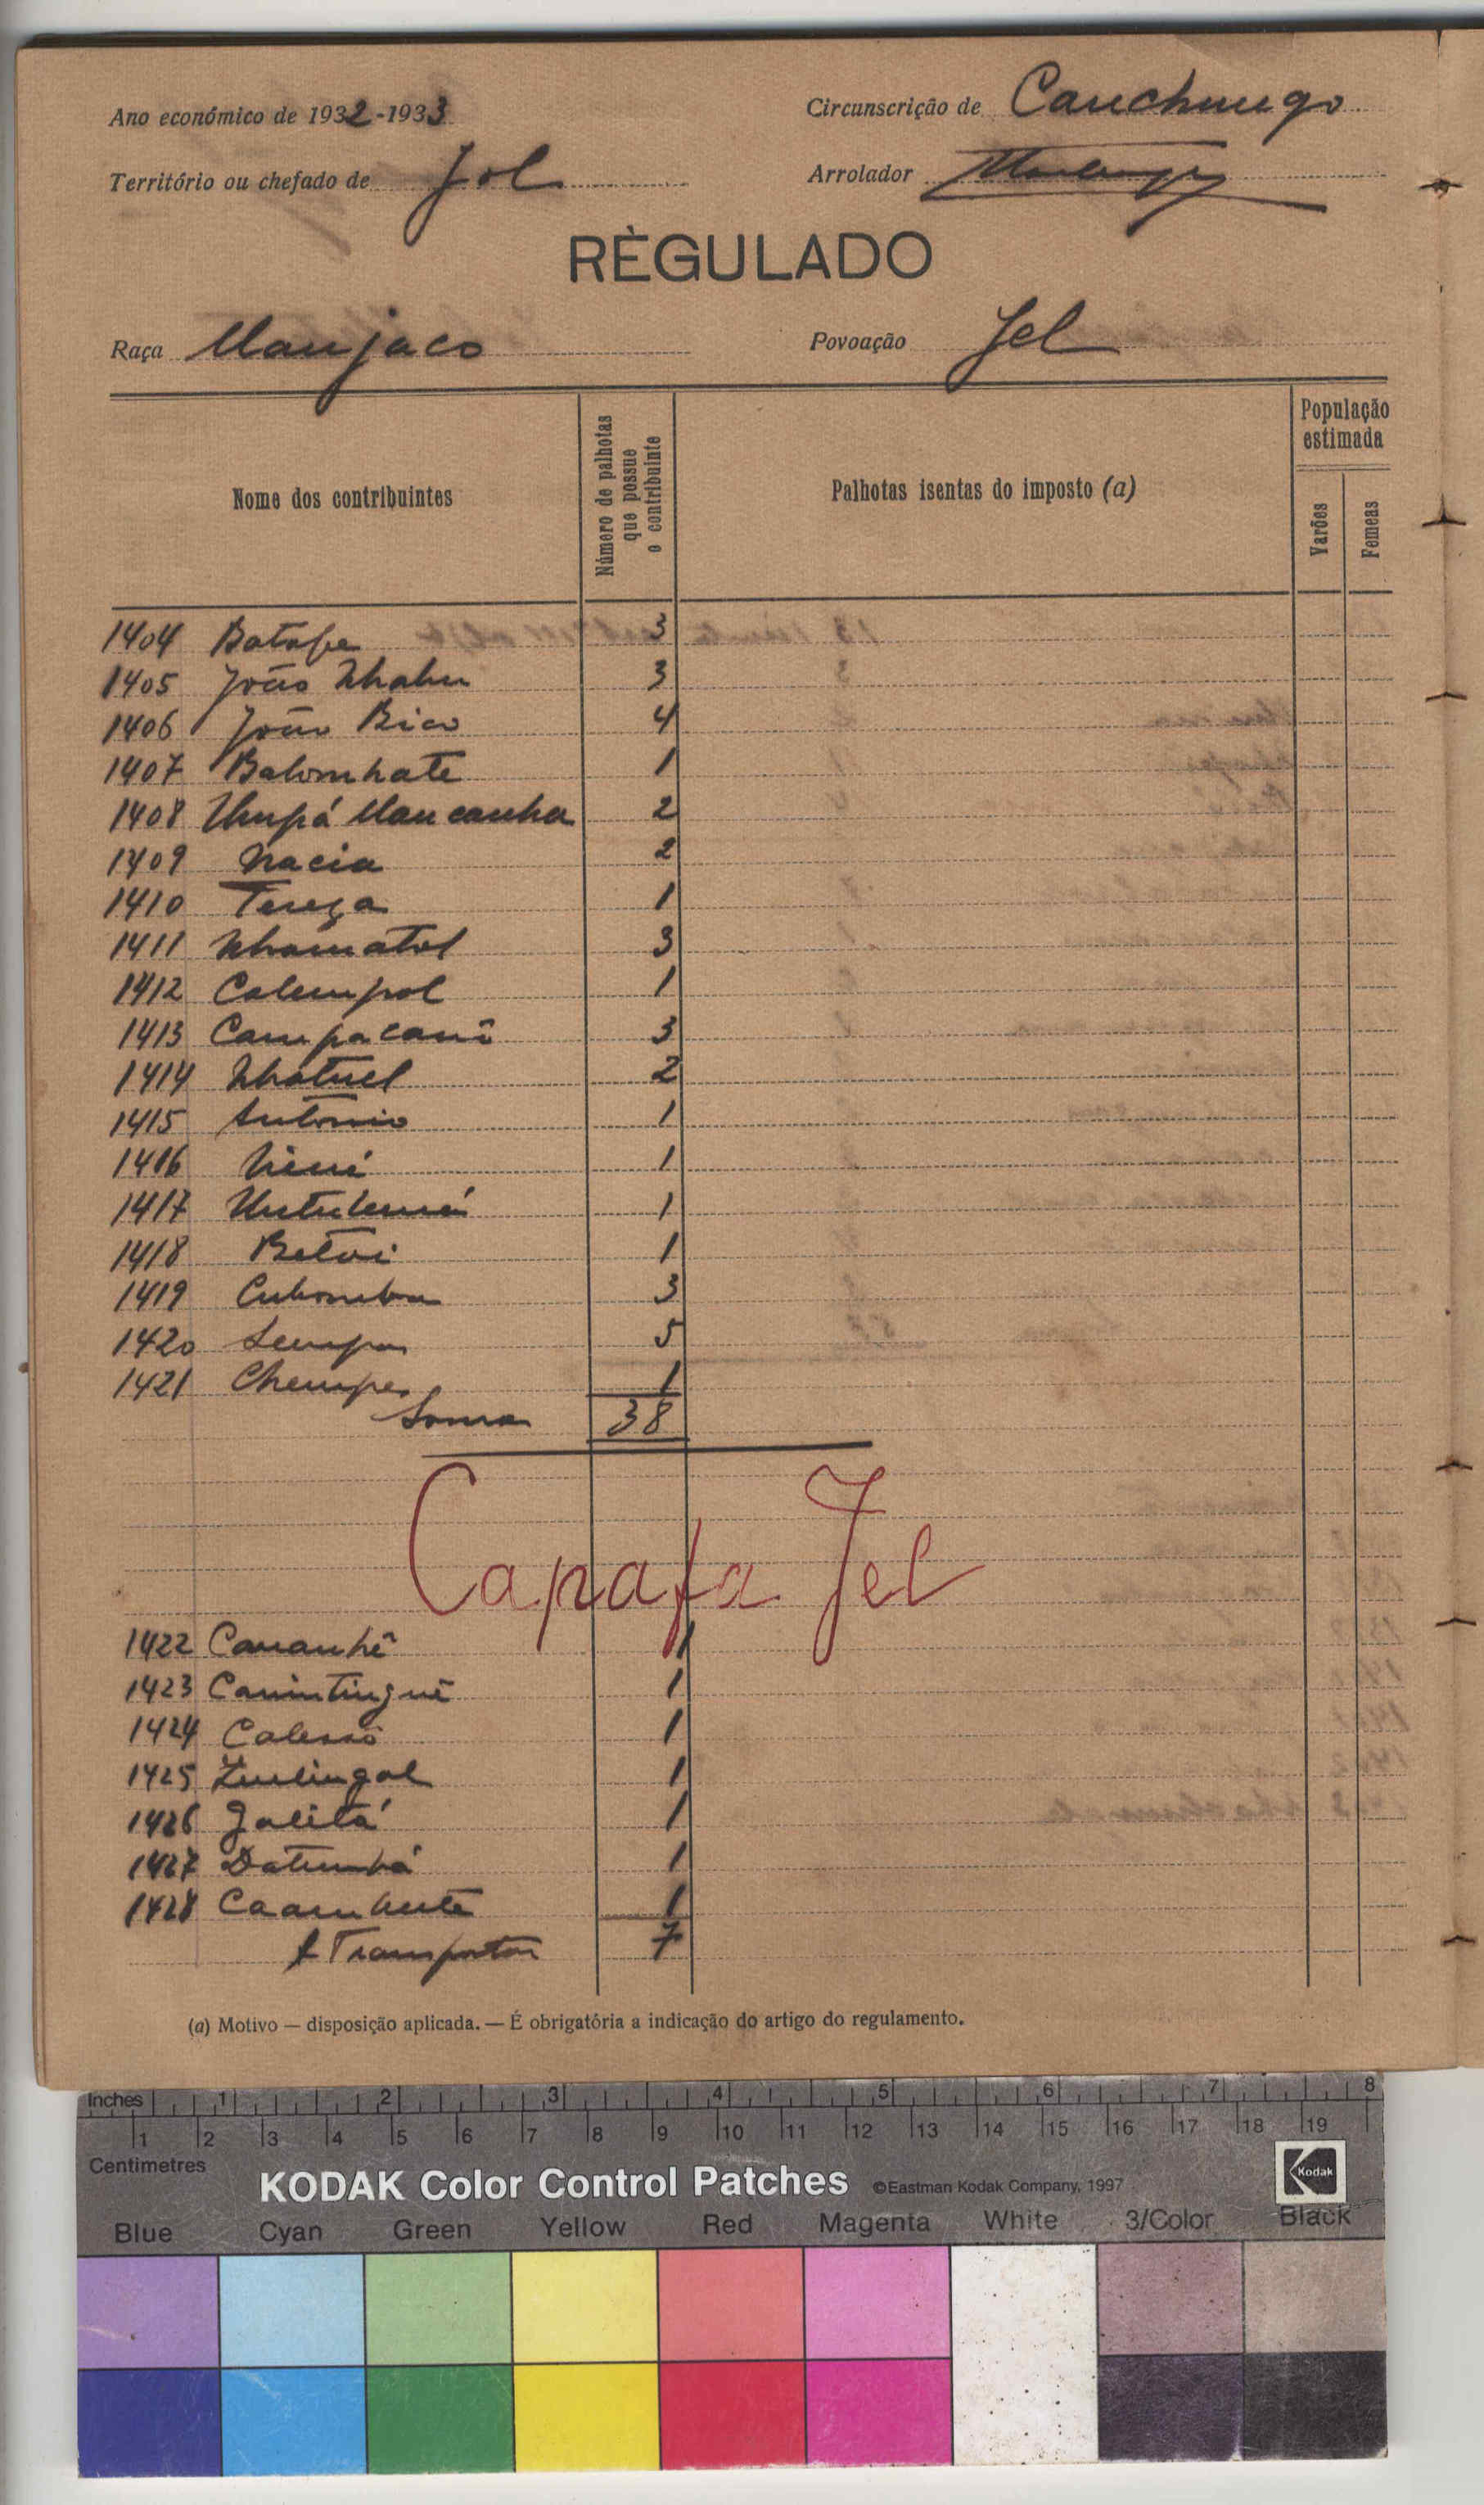 Ano económico de 1932-1933
Circunscrição de Canchungo
Território ou chefado de Jol
Arrolador
RÈGULADO
Raça Manjaco
Povoação Jel
Nome dos contribuintes
Número de palhotas que possue o contribuinte
Palhotas isentas do imposto (a)
População estimada
Varões
Femeas
1404 Batope 3
1405 João Nhahu 3
1406 João Bico 4
1407 Balomhate 1
1408 Mancanha 2
1409 Nacia 2
1410 Tereza 1
1411 Nhamatol 3
1412 Calempol 1
1413 Campacani 3
1414 Nhatuel 2
1415 António 1
1416 1
1417 1
1418 Betoi 1
1419 Cubomba 3
1420 Sempa 5
1421 Chempe 1
Soma 38
Capafa Jel
1422 Cananhê 1
1423 Canintinguê 1
1424 1
1425 1
1426 Jalitá 1
1427 1
1428 1
A Transportar 7
(a) Motivo — disposição aplicada. — É obrigatória a indicação do artigo do regulamento.
Inches 1 2 3 4 5 6 7 8
1 2 3 4 5 6 7 8 9 10 11 12 13 14 15 16 17 18 19
Centimetres
KODAK Color Control Patches ©Eastman Kodak Company, 1997 Kodak
Blue Cyan Green Yellow Red Magenta White 3/Color Black